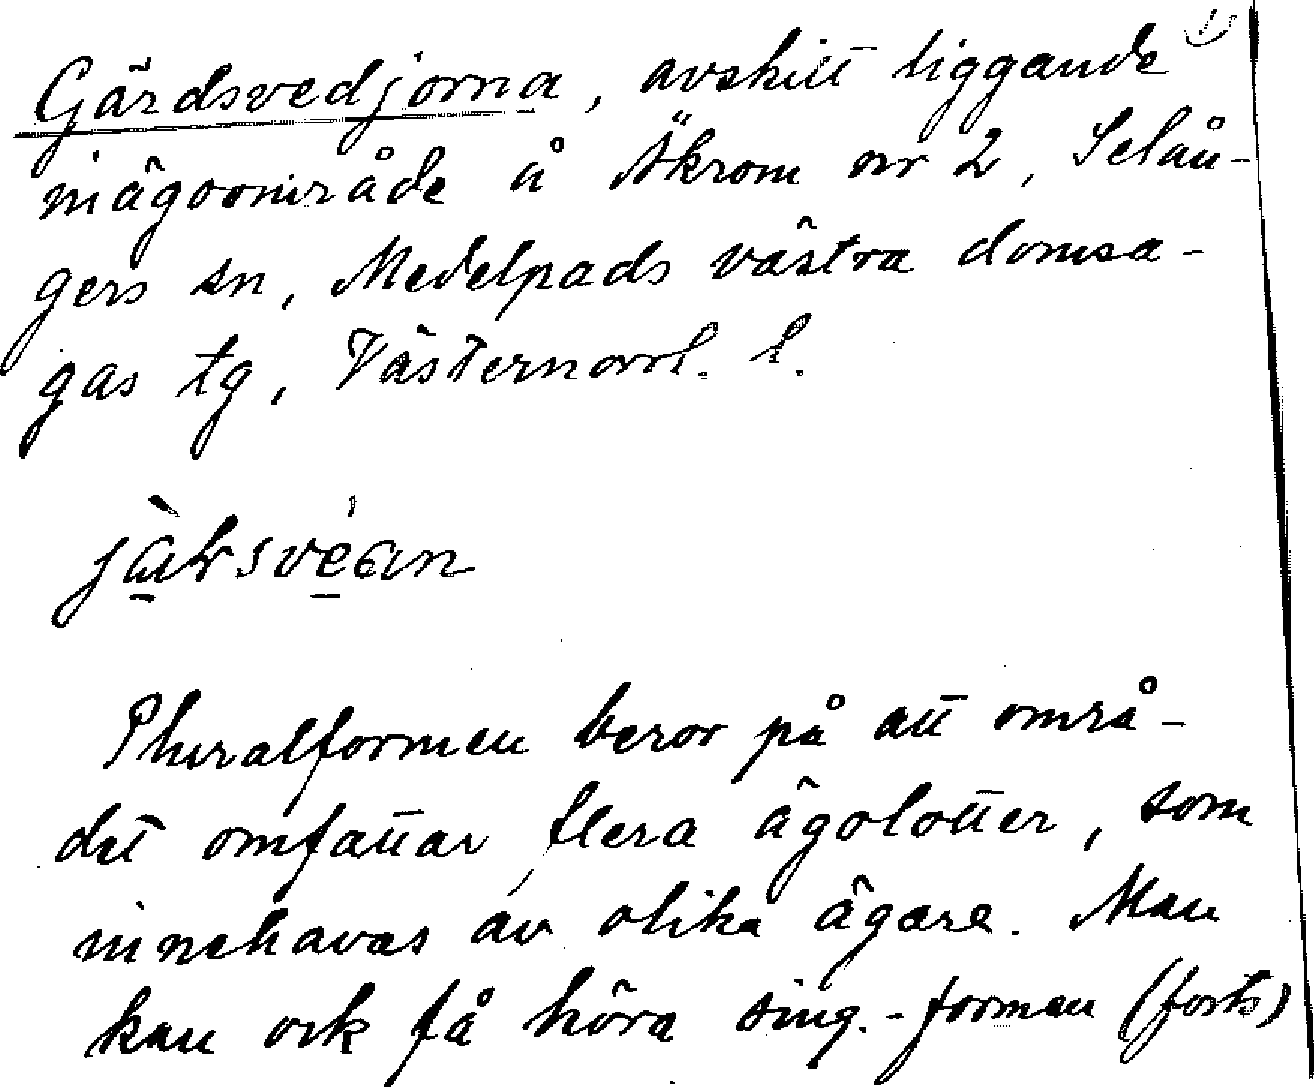 1)
Gärdsvedjorna, avskilt liggande
inägoområde å Økrom nr 2, Selån-
gers sn, Medelpads västra domsa-
gas tg, Västernorrl. l.
Pluralformen beror på att områ-
det omfattar flera ägolotter, som
innehavas av olika ägare. Man
kan ock få höra sing.-formen (forts)